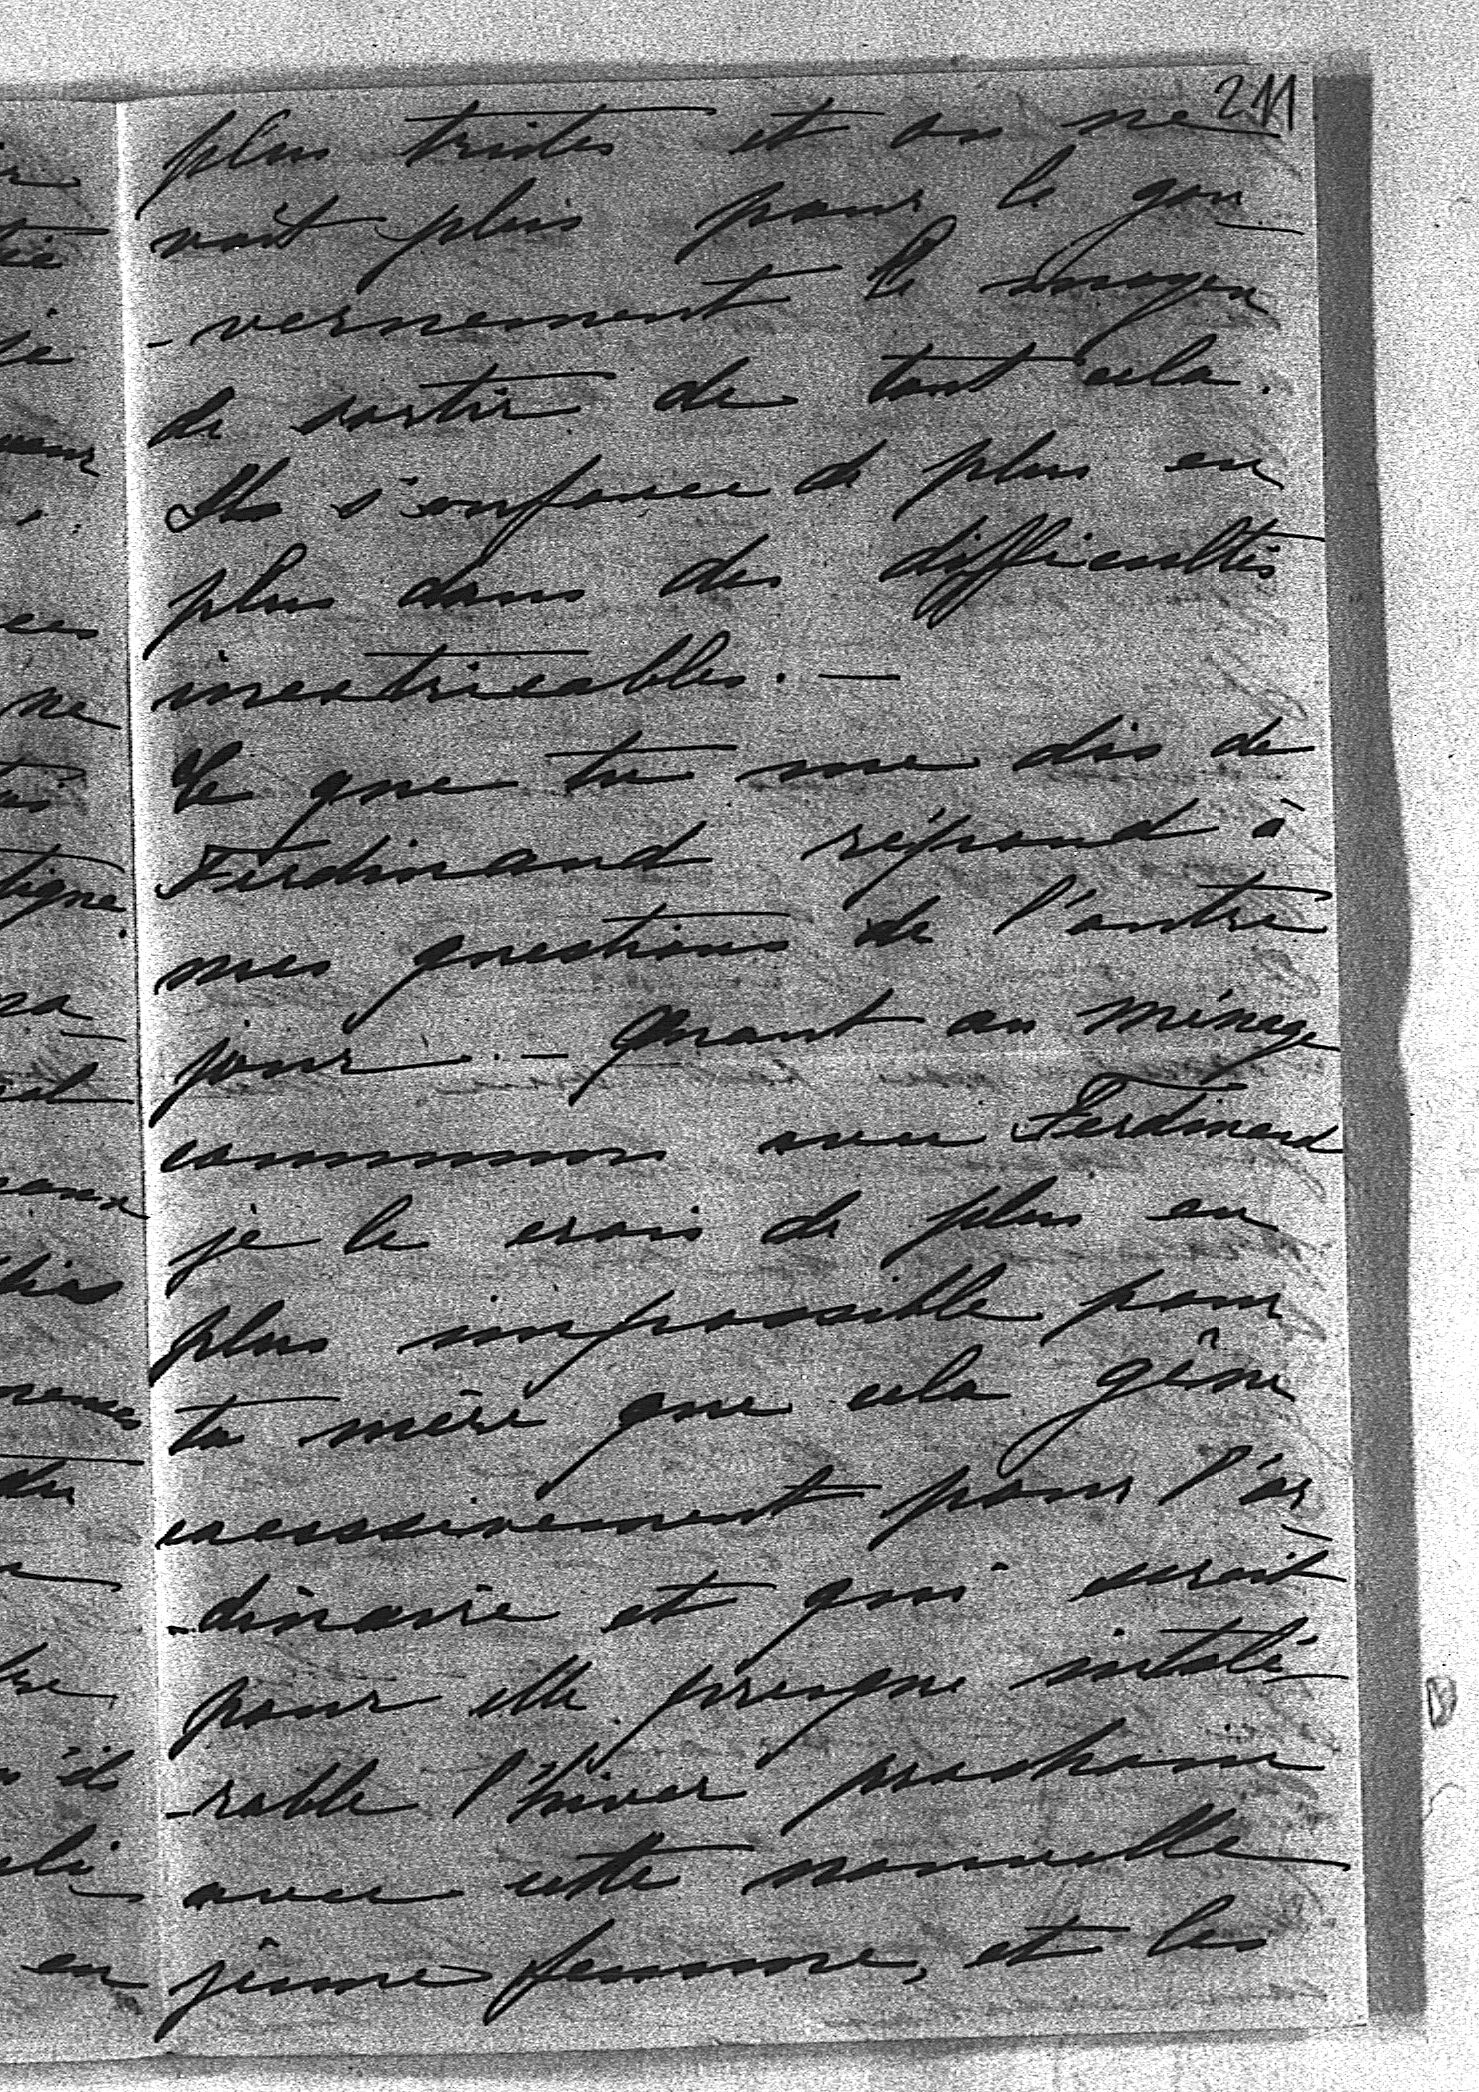 211
plus tristes et on ne
voit plus pour le gou
-vernement le moyen
de sortir de tout cela.
Il s'enfonce de plus en
plus dans des difficultés
inextricables. —
Ce que tu me dis de
Ferdinand répond à
mes questions de l'autre
jour. — Quant au ménage
commun avec Ferdinand
je le crois de plus en
plus impossible pour
ta mère que cela gêne
excessivement pour l'or
-dinaire et qui serait
pour elle presque intolé
-rable l'hiver prochain
avec cette nouvelle
jeune femme, et les